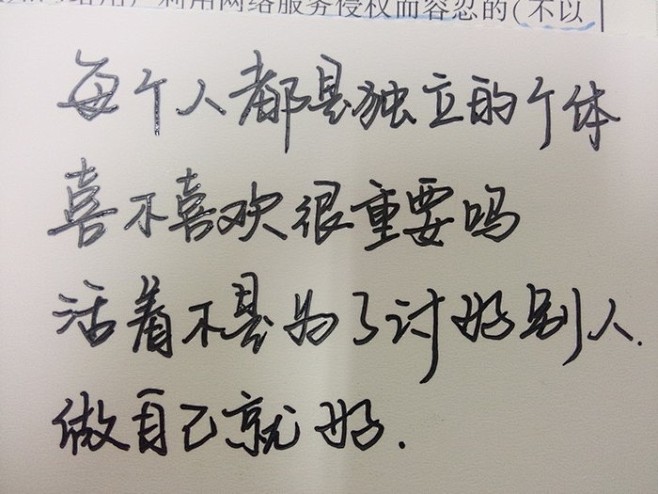 用户利用网络服务侵权而容忍的(不以
每个人都是独立的个体
喜不喜欢很重要吗
活着不是为了讨好别人.
做自己就好.